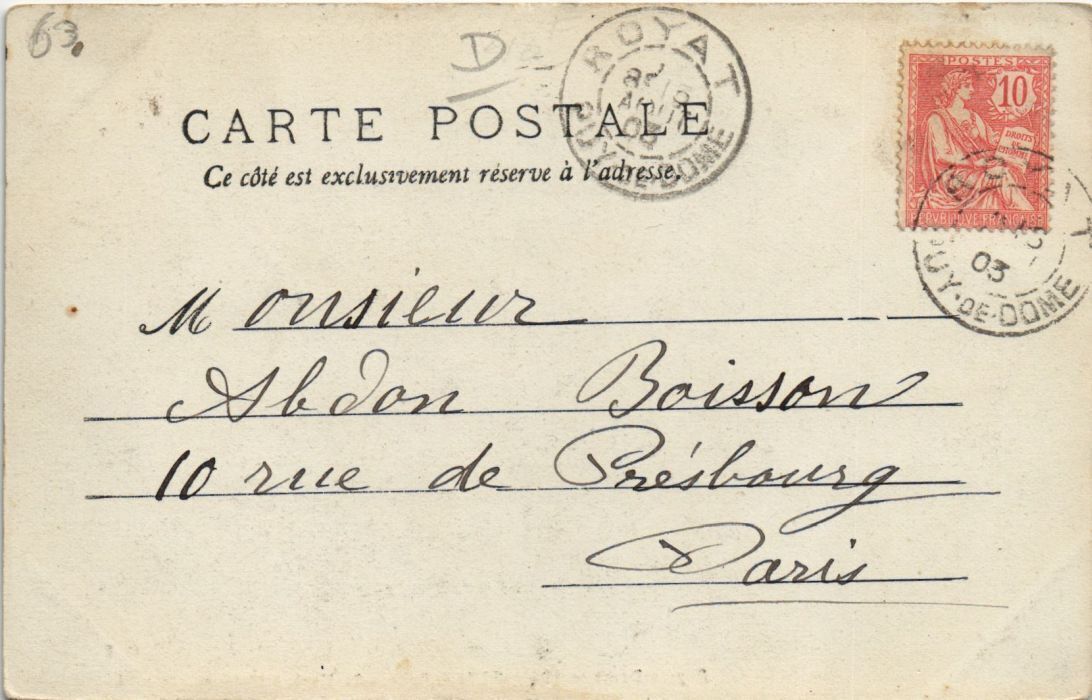 63.
D
ROYAT
PUY-DE-DOME
CARTE POSTALE
Ce côté est exclusivement réservé à l'adresse.
POSTES
10
DROITS
DE
L'HOMME
REPVBLIQVE FRANÇAISE
03
PUY-DE-DOME
Monsieur
Abdon Boisson
10 rue de Présbourg
Paris